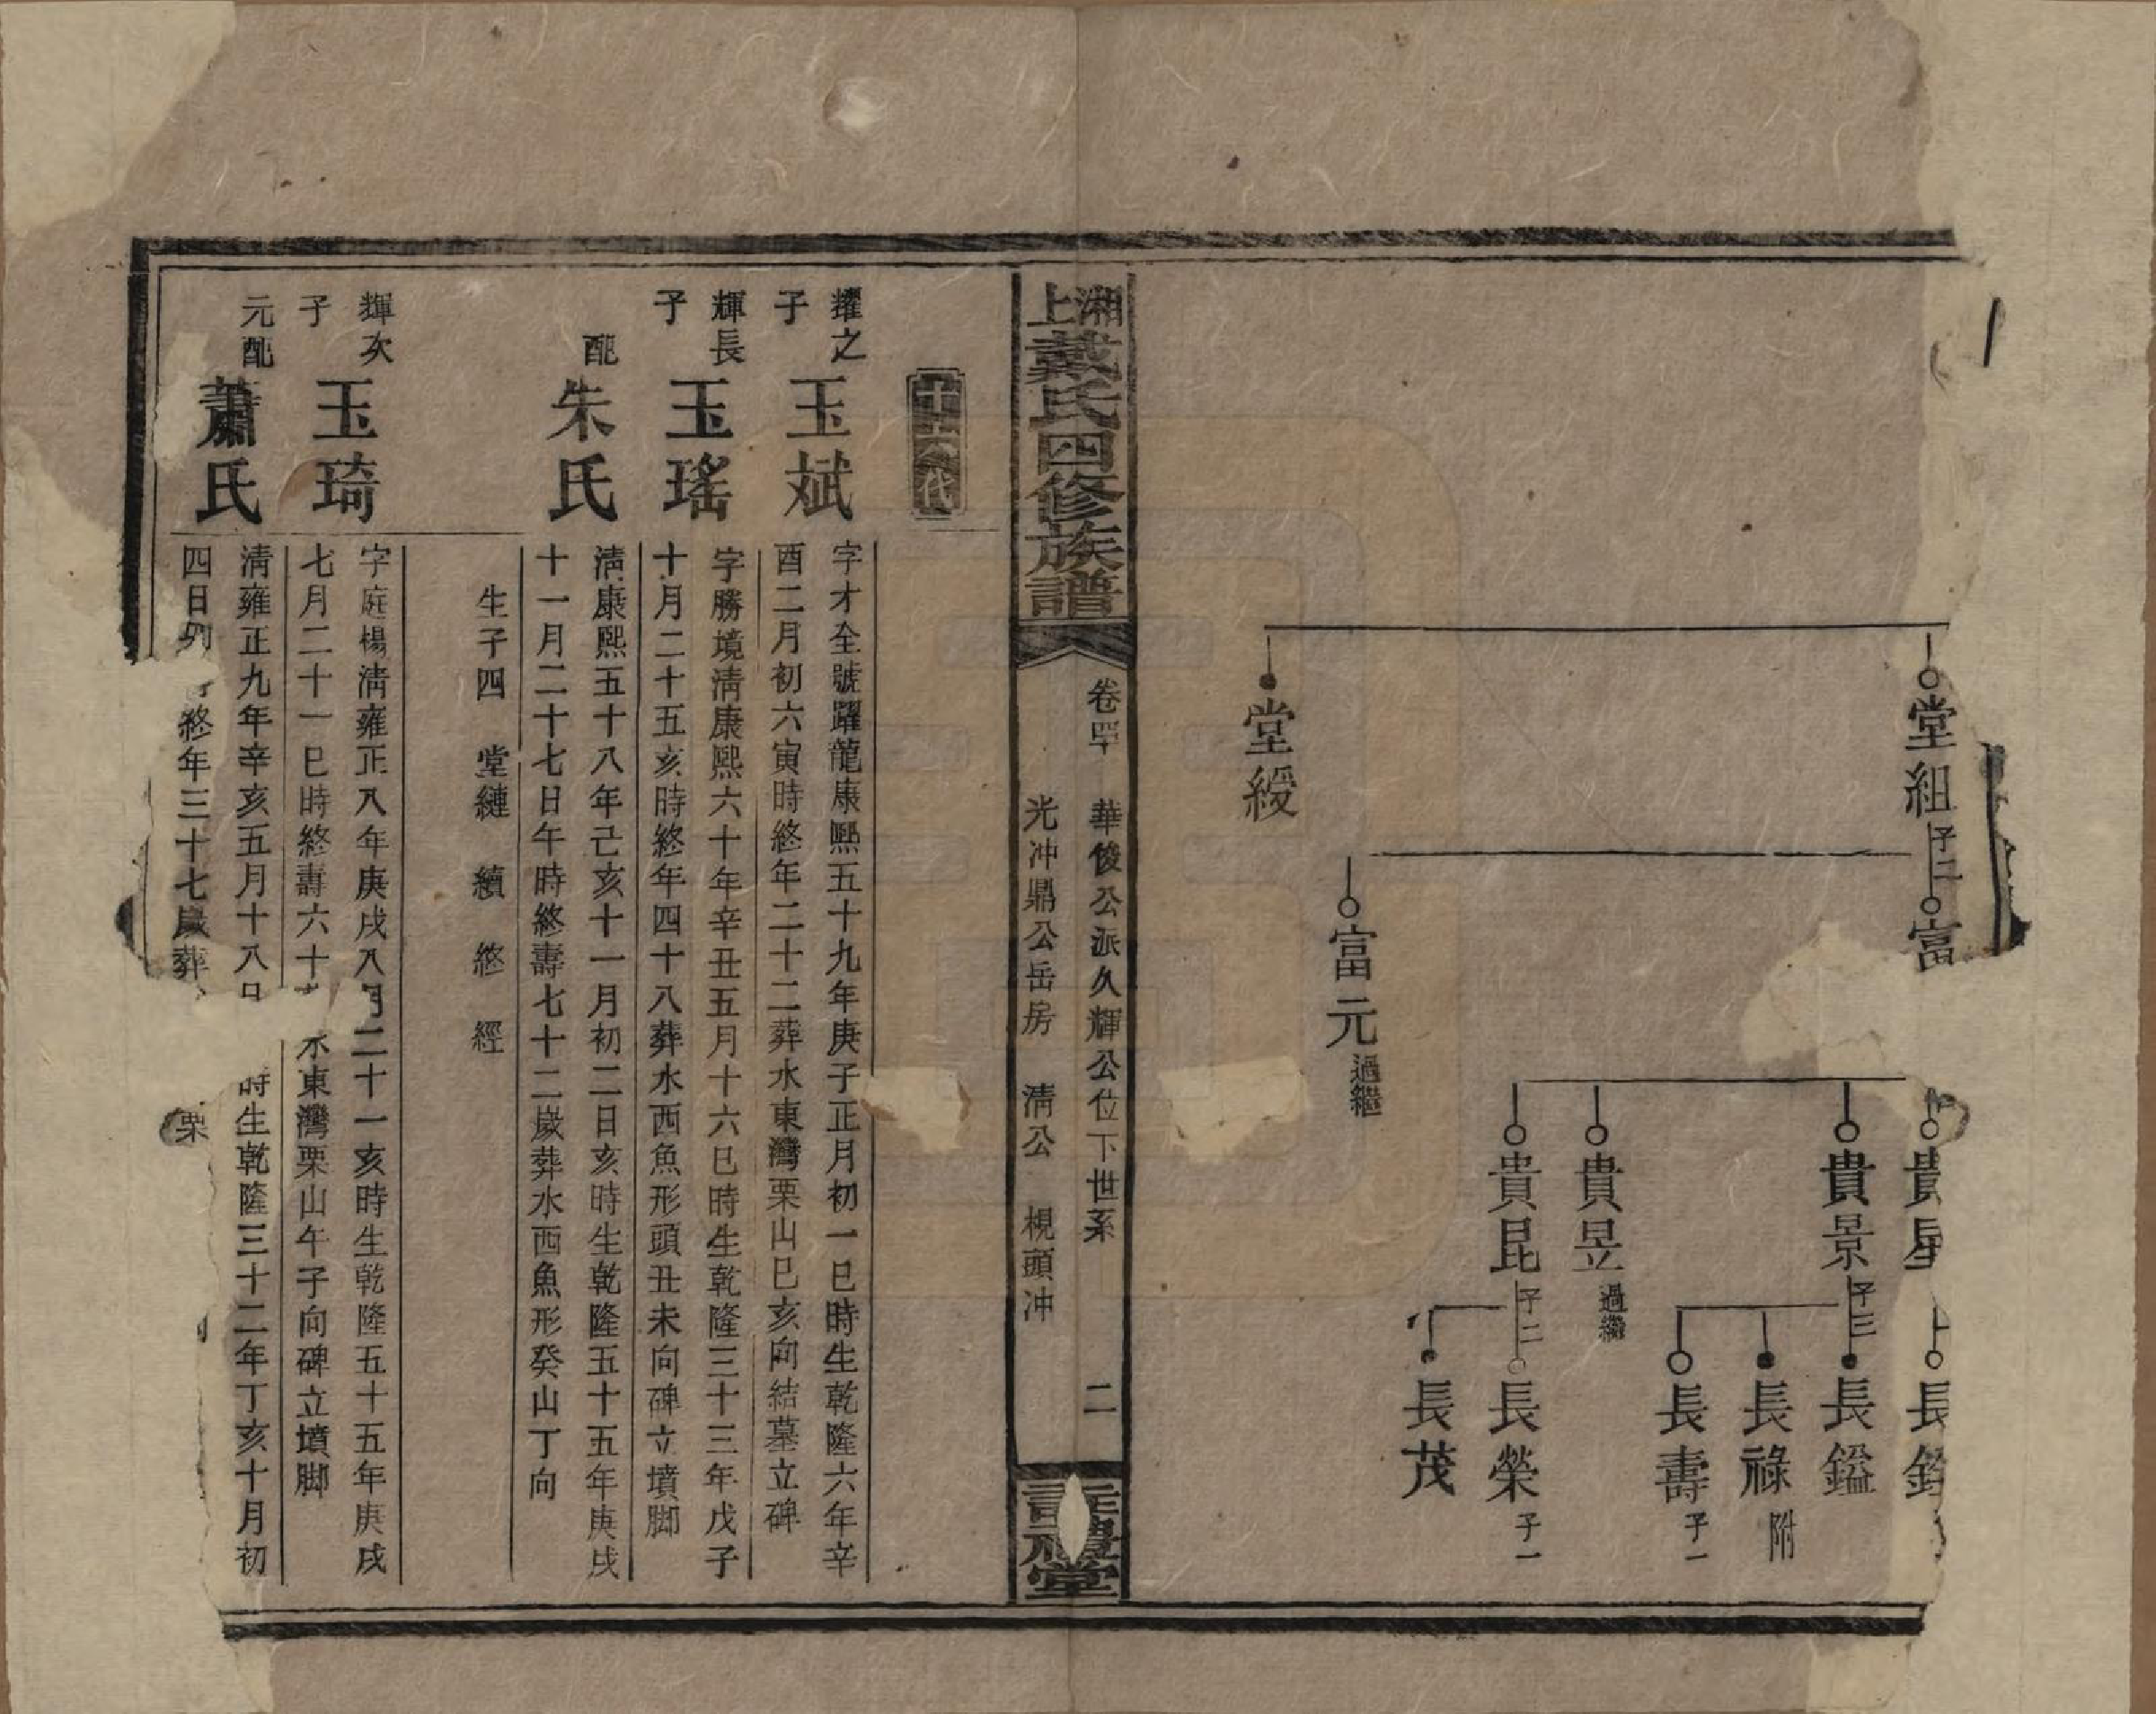 堂組
子二
堂綬
富
富元
過繼
貴
貴景
子三
貴昱
過繼
貴昆
子二
長
長鎰
長祿
附
長壽
子一
長榮
子一
長茂
湘上戴氏四修族譜
卷四
華俊公派久輝公位下世系
光冲鼎公岳房 淸公 梘頭冲
二
禮堂
十六代
擢之子 玉斌
字才全號躍龍康熙五十九年庚子正月初一巳時生乾隆六年辛
酉二月初六寅時終年二十二葬水東灣栗山巳亥向結墓立碑
輝長子 玉瑤
字勝境淸康熙六十年辛丑五月十六巳時生乾隆三十三年戊子
十月二十五亥時終年四十八葬水西魚形頭丑未向碑立墳脚
配 朱氏
淸康熙五十八年己亥十一月初二日亥時生乾隆五十五年庚戌
十一月二十七日午時終壽七十二歲葬水西魚形癸山丁向
生子四 堂縺 續 終 經
輝次子 玉琦
字庭楊淸雍正八年庚戌八月二十一亥時生乾隆五十五年庚戌
七月二十一巳時終壽六十 水東灣栗山午子向碑立墳脚
元配 蕭氏
淸雍正九年辛亥五月十八日 時生乾隆三十二年丁亥十月初
四日卯 終年三十七歲葬 栗